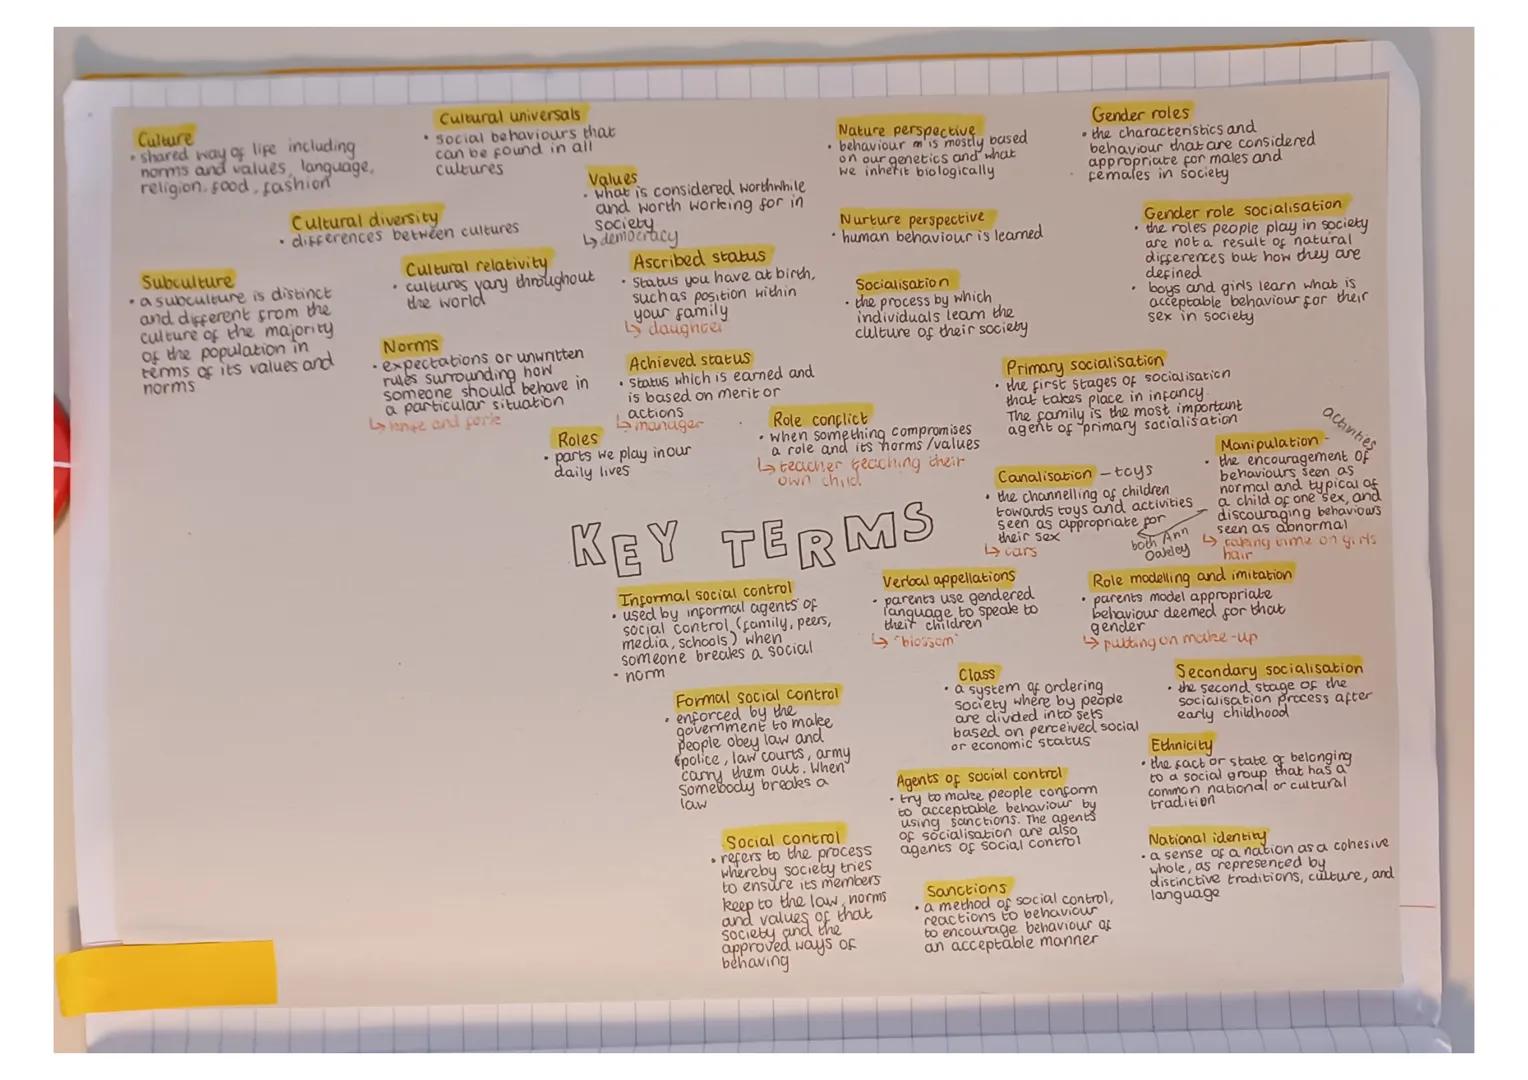 Culture
• shared way of life including
norms and values, language,
religion, food, fashion
Cultural universals
• social behaviours that
can be found in all
cultures
Cultural diversity
• differences between cultures
Values
• what is considered worthwhile
and worth working for in
society
↳ democracy
Subculture
• a subculture is distinct
and different from the
culture of the majority
of the population in
terms of its values and
norms
Cultural relativity
• cultures vary throughout
the world
Ascribed status
• status you have at birth,
such as position within
your family
↳ daughter
Norms
• expectations or unwritten
rules surrounding how
someone should behave in
a particular situation
↳ knife and fork
Achieved status
• status which is earned and
is based on merit or
actions
↳ manager
Roles
• parts we play in our
daily lives
Role conflict
• when something compromises
a role and its norms/values
↳ teacher teaching their
own child.
Nature perspective
• behaviour is mostly based
on our genetics and what
we inherit biologically
Nurture perspective
• human behaviour is learned
Socialisation
• the process by which
individuals learn the
clulture of their society
Gender roles
• the characteristics and
behaviour that are considered
appropriate for males and
females in society
Gender role socialisation
• the roles people play in society
are not a result of natural
differences but how they are
defined
• boys and girls learn what is
acceptable behaviour for their
sex in society
Primary socialisation
• the first stages of socialisation
that takes place in infancy.
The family is the most important
agent of primary socialisation
Canalisation - toys
• the channelling of children
towards toys and activities
seen as appropriate for
their sex
↳ cars
Manipulation - activities
• the encouragement of
behaviours seen as
normal and typical of
a child of one sex, and
discouraging behaviours
seen as abnormal
↳ taking time on girls
hair
both Ann
Oakley
KEY TERMS
Informal social control
• used by informal agents of
social control (family, peers,
media, schools) when
someone breaks a social
• norm
Verbal appellations
• parents use gendered
language to speake to
their children
↳ "blossom"
Role modelling and imitation
• parents model appropriate
behaviour deemed for that
gender
↳ putting on make-up
Formal social control
• enforced by the
government to make
people obey law and
police, law courts, army
carry them out. When
somebody breaks a
law
Class
• a system of ordering
society where by people
are divided into sets
based on perceived social
or economic status
Secondary socialisation
• the second stage of the
socialisation process after
early childhood
Ethnicity
• the fact or state of belonging
to a social group that has a
common national or cultural
tradition
Agents of social control
• try to make people conform
to acceptable behaviour by
using sanctions. The agents
of socialisation are also
agents of social control
Social control
• refers to the process
whereby society tries
to ensure its members
keep to the law, norms
and values of that
society and the
approved ways of
behaving
Sanctions
• a method of social control,
reactions to behaviour
to encourage behaviour of
an acceptable manner
National identity
• a sense of a nation as a cohesive
whole, as represented by
distinctive traditions, culture, and
language